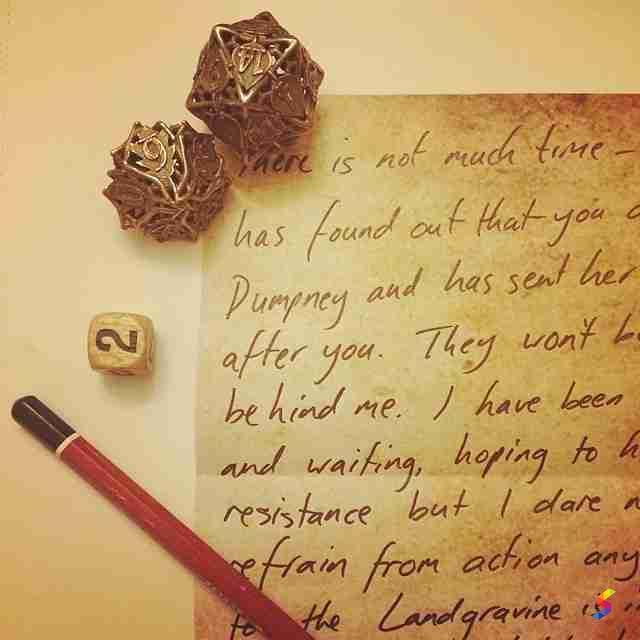 There is not much time –
has found out that you
Dumpney and has sent her
after you. They won't
behind me. I have been
and waiting, hoping to
resistance but I dare
refrain from action
the Landgravine is
9
2